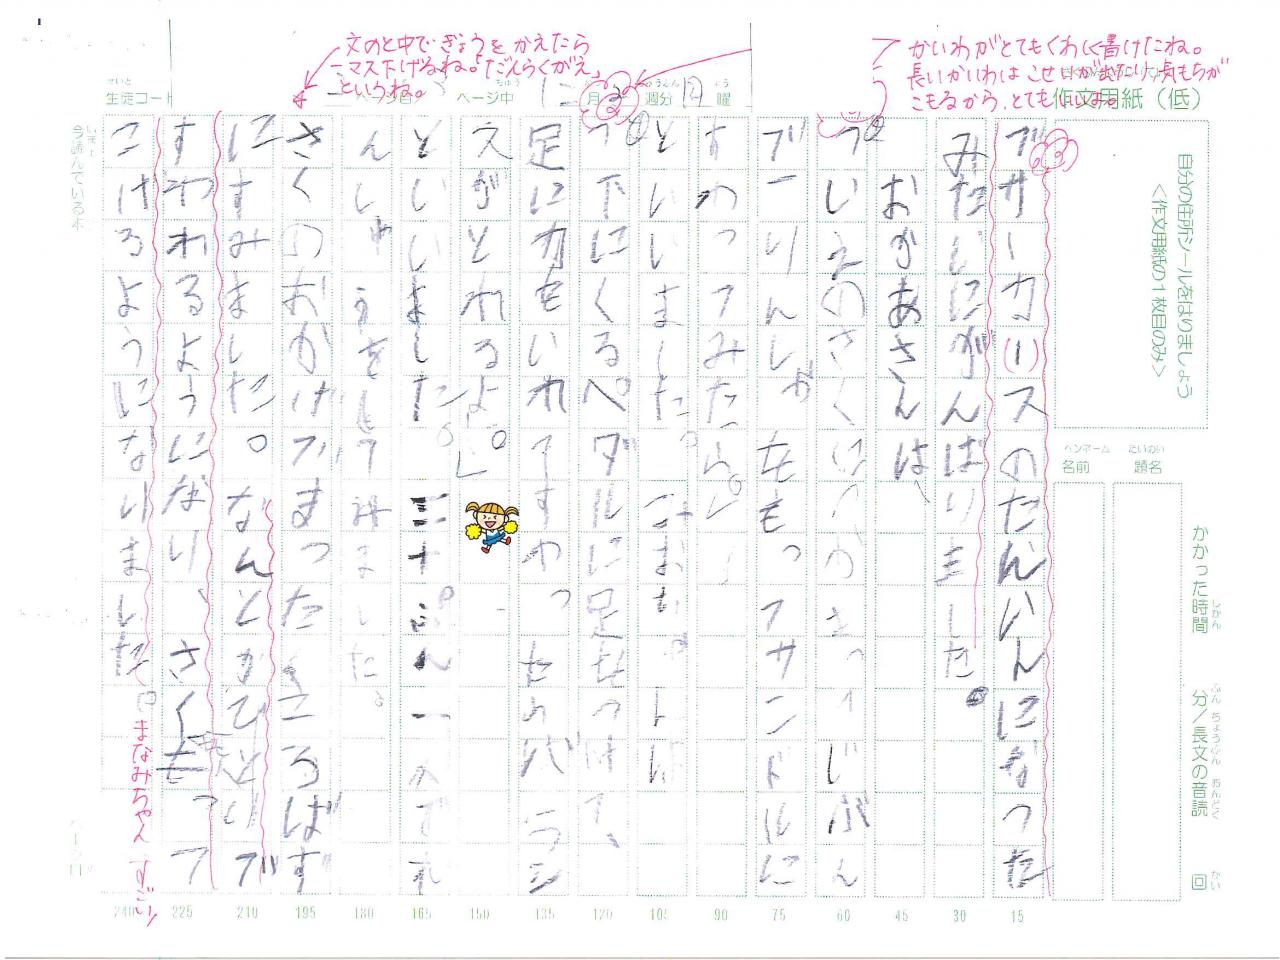 文のと中でぎょうをかえたら
一マス下げるね。「だんらくがえ」
というね。
かいわがとてもくわしく書けたね。
長いかいわは こせいが出たり、気もちが
こもるから、とてもいいよ。
せいと
生徒コート
ページ目
ちゅう
ページ中
月 3 週分
よう
曜
作文用紙(低)
自分の住所シールをはりましょう
<作文用紙の1枚目のみ>
ペンネーム
名前
だいめい
題名
かかった時間
じかん
分/長文の音読
ふん ちょうぶん おんどく
回
かい
ブサーカースのたんいんになった
みたじにがんばりました。
おかあさんは、
「いえのさくにつかまって じぶん
ブーりんしゃをもってサンドルに
すわってみたら。」
といいました。こおお。トば
「下にくるペダルに足をつけて、
足に力をいれてすわったらバランシ
えがとれるよ。」
といいました。三十ぷん一人でれ
んしゅうをしてみました。
さくのおかげでまったくころばず
にすみました。なんとかひとりで
すわれるようになり、さくもつて
こげるようになりました。
まなみちゃん すごい!
今読んでいる本
15
30
45
60
75
90
105
120
135
150
165
180
195
210
225
240